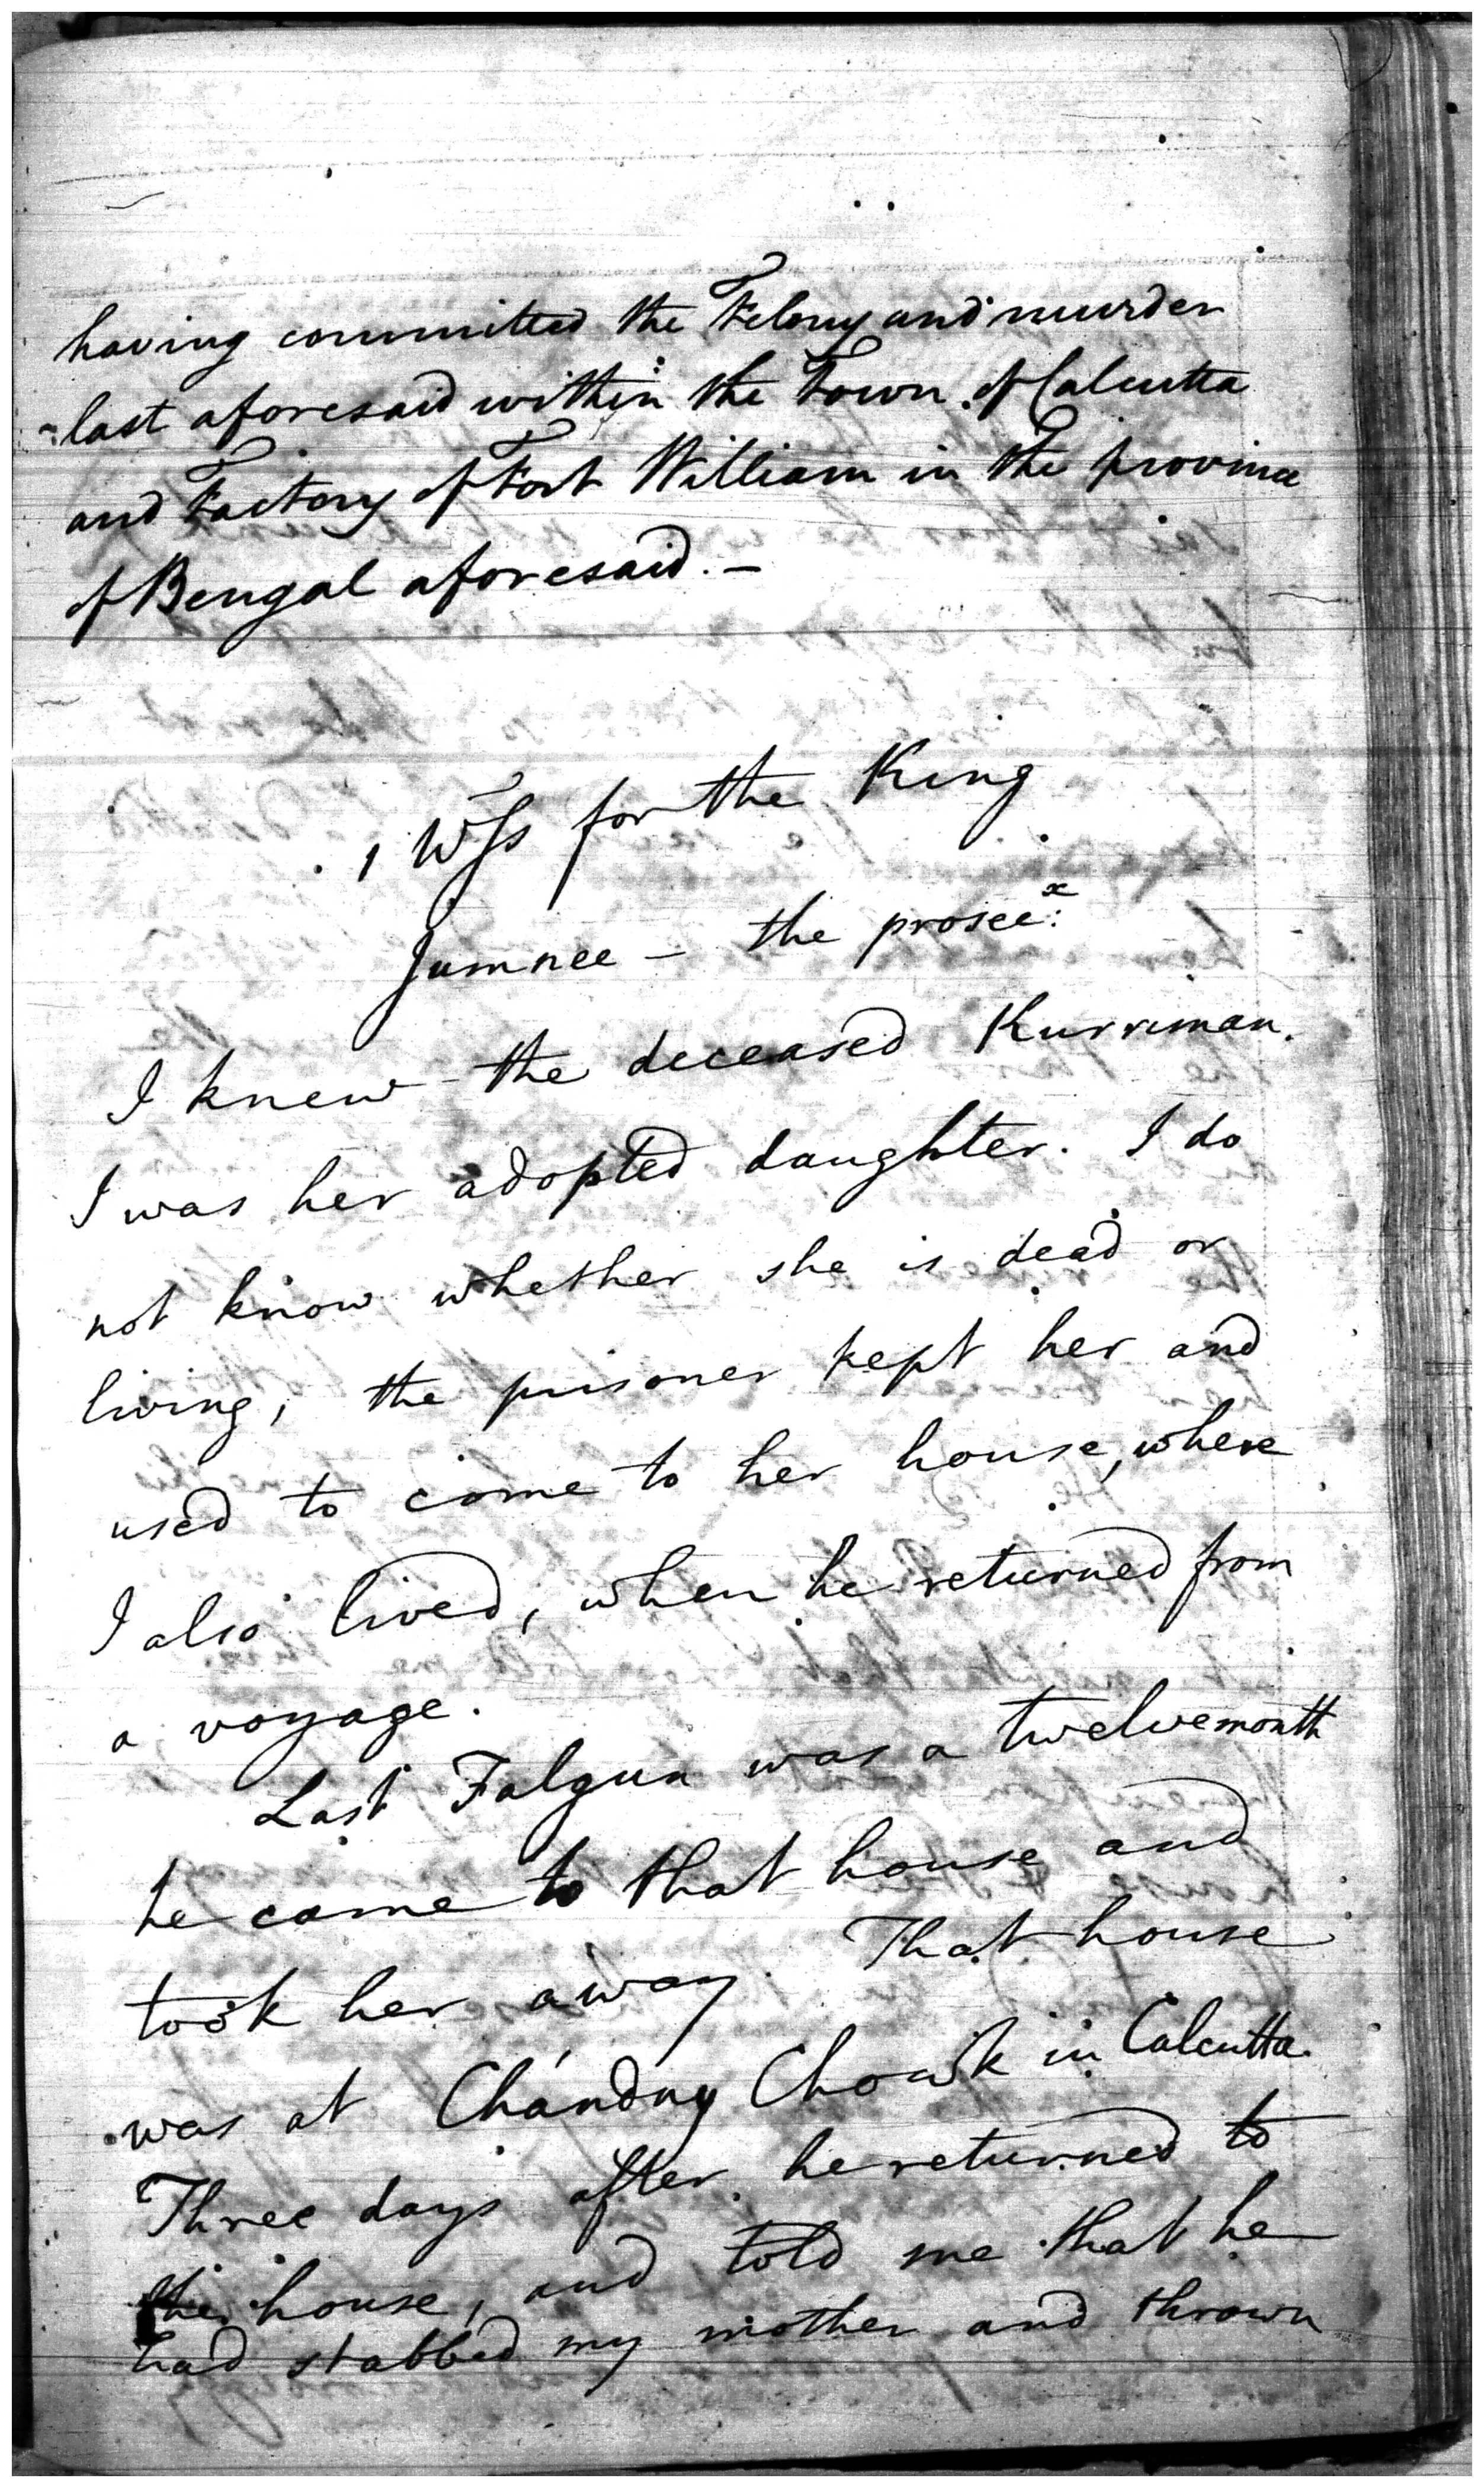 having committed the Felony and murder
last aforesaid within the Town of Calcutta
and Factory of Fort William in the province
of Bengal aforesaid. –
1 Wss for the King
Jumnee – the prosec:x
I knew the deceased Kurriman.
I was her adopted daughter. I do
not know whether she is dead or
living; the prisoner kept her and
used to come to her house, where
I also lived, when he returned from
a voyage.
Last Falgun was a twelvemonth
he came to that house and
took her away. That house
was at Chándny Chowk in Calcutta.
Three days after he returned to
the house, and told me that he
had stabbed my mother and thrown